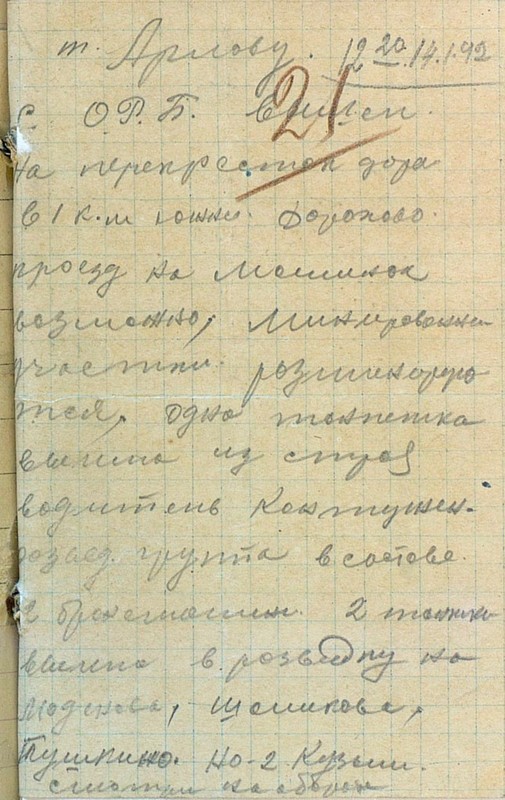 т. Арлову. 12 20 14.1.42
21
с О.Р.Б. вышел.
на перекресток дорог
в 1 к.м южн. Дорохово.
проезд на машинах
возможно, минированн
участки розминирую
тся, одна танкетка
вышла из строя
водитель контужен.
розвед. группа в составе.
2 бронемашин. 2 танка
вышла в розведку на
Моденово, Шаликово,
Пушкино. но-2 Кузьм.
смотри на оборон